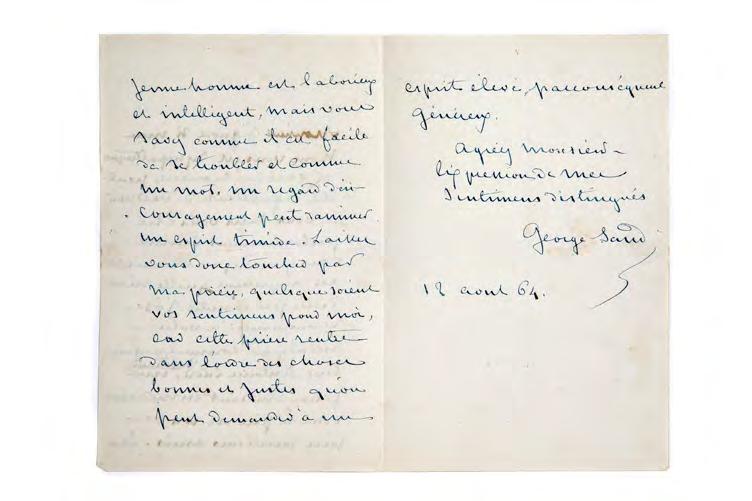 jeune homme est laborieux
et intelligent, mais vous
savez comme il est facile
de se troubler et comme
un mot, un regard d'en-
couragement peut ranimer
un esprit timide. Laissez
vous donc toucher par
ma prière, quels que soient
vos sentimens pour moi,
car cette prière rentre
dans l'ordre des choses
bonnes et justes qu'on
peut demander à un
esprit élevé, par conséquent
généreux.
Agréez monsieur
l'expression de mes
sentimens distingués
George Sand
12 aout 64.